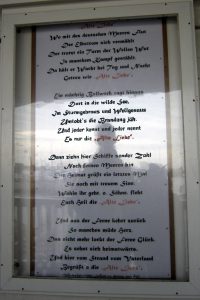 "Alte Liebe"
Wo mit des deutschen Meeres Flut
Der Elbstrom sich vermählt
Der trotzt ein Turm der Wellen Wut
In manchem Kampf gestählt.
Du hält er Wacht bei Tag und Nacht
Getreu wie „Alte Liebe".
Ein mächtig Bollwerk ragt hinein
Dort in die wilde See,
Im Sturmgebraus und Wellgetose
Umtobt's die Brandung jäh.
Und jeder kennt und jeder nennt
Es nur die „Alte Liebe".
Dann ziehn hier Schiffe sonder Zahl
Nach fernen Meeren hin
Die Heimat grüßt ein letztes Mal
Sie noch mit treuem Sinn.
Wohin ihr geht, o, Söhne, fleht
Euch Heil die „Alte Liebe".
Und aus der Ferne kehrt zurück
So manches müde Herz,
Das nicht mehr lockt der Ferne Glück.
Es sehnt sich heimatwärts.
Und hier vom Strand vom Vaterland
Begrüßt's die „Alte Liebe".